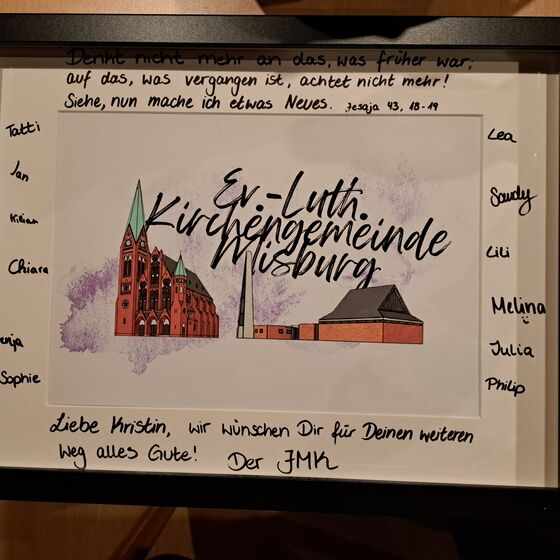 Denkt nicht mehr an das, was früher war;
auf das, was vergangen ist, achtet nicht mehr!
Siehe, nun mache ich etwas Neues. Jesaja 43, 18-19
Tatti
Jan
Kilian
Chiara
enja
Sophie
Ev.-Luth.
Kirchengemeinde
Misburg
Lea
Sandy
Lili
Melina
Julia
Philip
Liebe Kristin, wir wünschen Dir für Deinen weiteren
Weg alles Gute! Der JMK